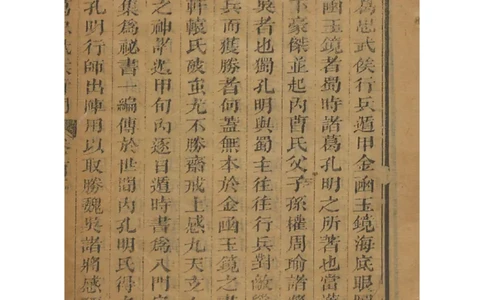 葛忠武侯行兵遁甲金函玉鏡海底眼
函玉鏡者蜀時諸葛孔明之所著也當
下豪傑並起內曹氏父子孫權周瑜諸將
吳者也蜀孔明與蜀主往往行兵對敵
兵而獲勝者何蓋無本於金函玉鏡之書
軒轅氏破蚩尤不勝齋戒上感九天玄
之神遁甲旬內逐日遁時書為八門定
集為祕書十編傳於世間內孔明氏得
孔明行師出陣用以取勝魏吳諸將感